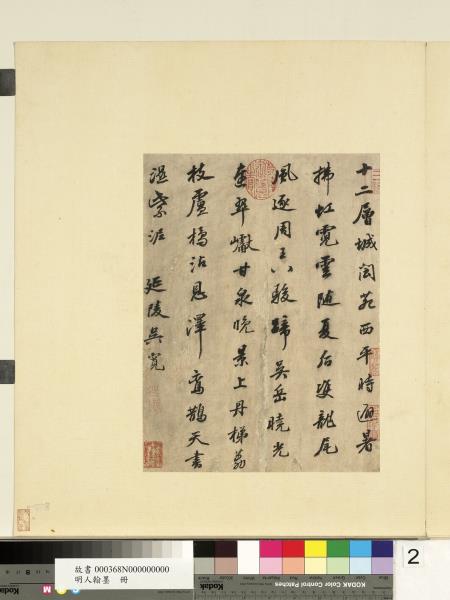 十二層城閬苑西平時避暑
拂虹霓雲隨夏后雙龍尾
風逐周王八駿蹄吳岳曉光
連翠巘甘泉晚景上丹梯荔
枝盧橘沾恩澤鸞鵲天書
濕紫泥 延陵吳寬
故書 000368N000000000
明人翰墨 冊
KODAK Color Control Patches
2
Kodak